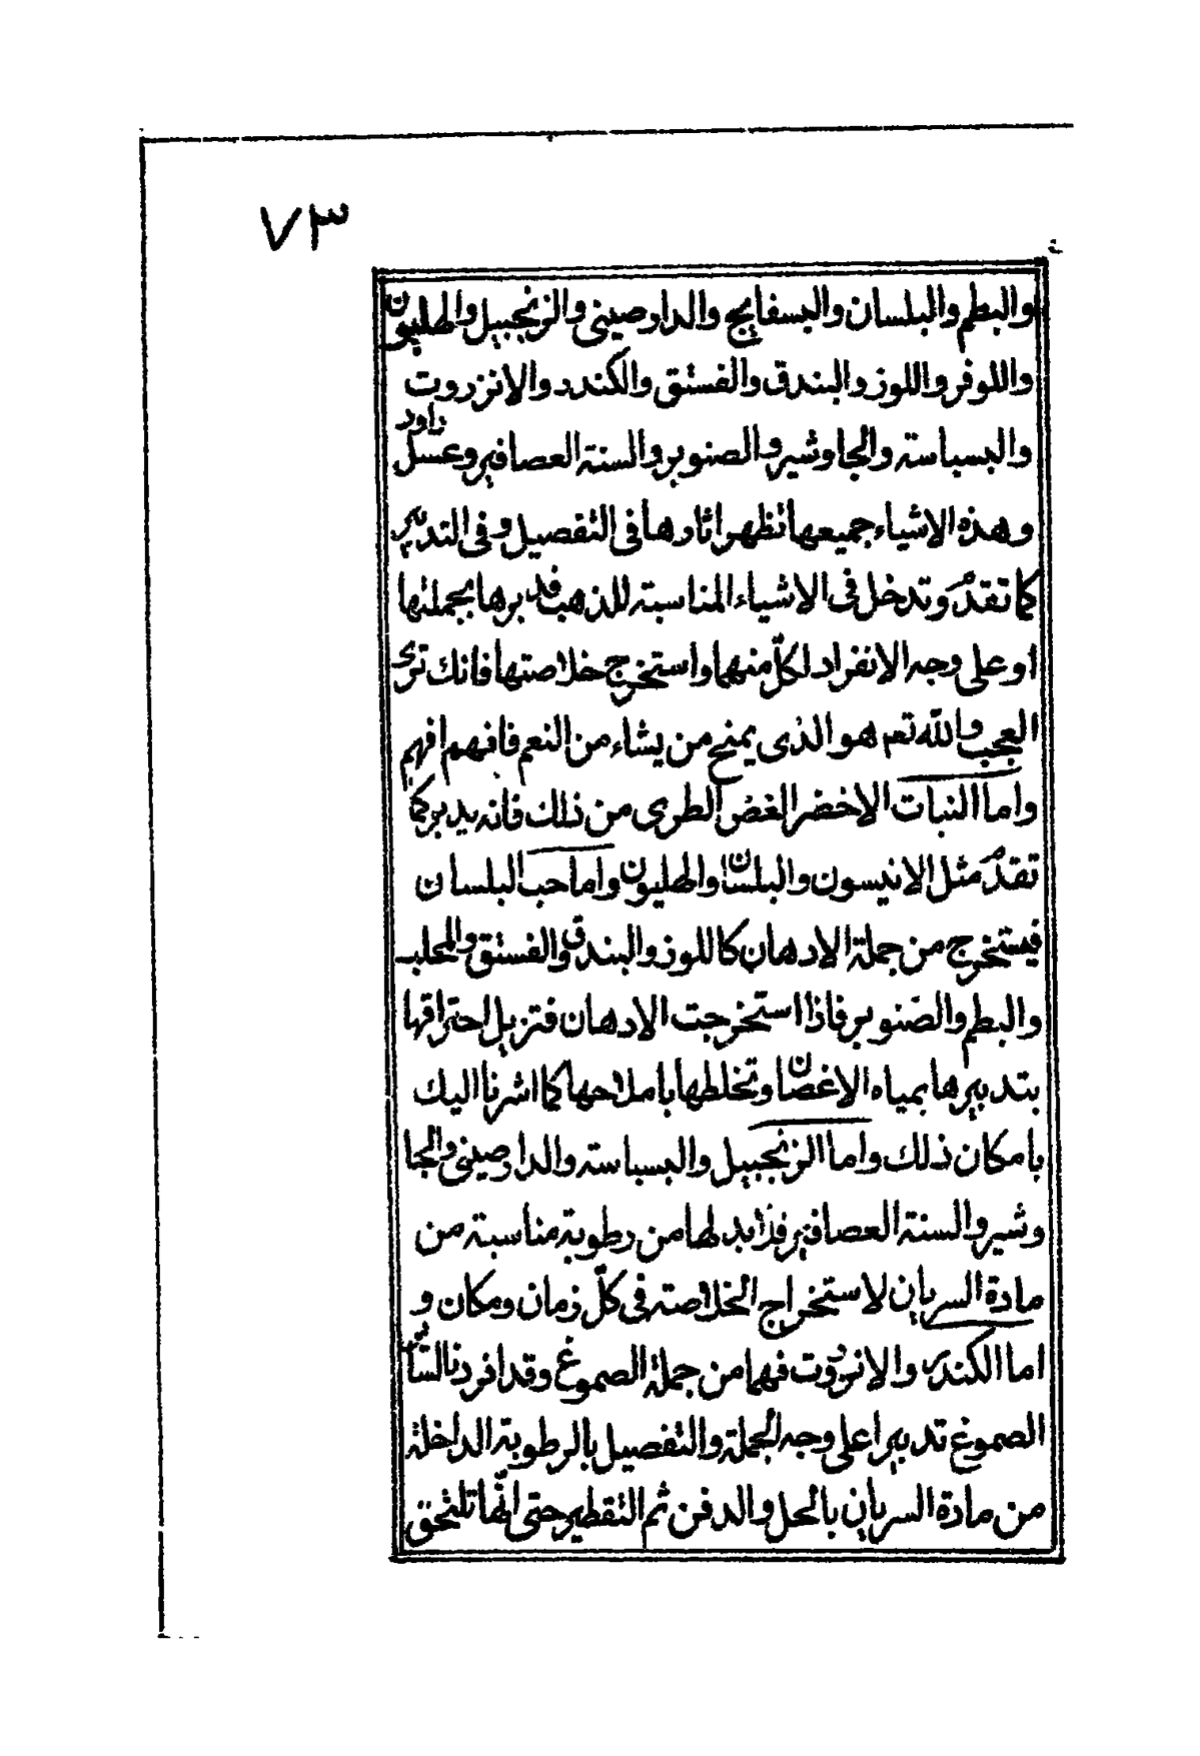 ٧٣
والبطم والبلسان والبسفايج والدارصيني والزنجبيل والهليون
واللوفر واللوز والبندق والفستق والكندر والانزروت
والبسباسة والجاوشير والصنوبر والسنة العصافير وعسل داود
وهذه الاشياء جميعها تظهر اثارها في التفصيل وفي التدبير
كما تقدم وتدخل في الاشياء المناسبة للذهب فدبرها بجملتها
او على وجه الانفراد لكلّ منهما واستخرج خلاصتها فانك ترى
العجب والله تعم هو الذى يمنح من يشاء من النعم فافهم افهم
واما النبات الاخضر الغض الطرى من ذلك فانه يدبر كما
تقدم مثل الانيسون والبلسان والهليون واما حب البلسان
فيستخرج من جملة الادهان كاللوز والبندق والفستق والمحلب
والبطم والصنوبر فاذا استخرجت الادهان فتزيل احتراقها
بتدبيرها بمياه الاغصان وتخلطها باملاحها كما اشرنا اليك
بامكان ذلك واما الزنجبيل والبسباسة والدارصيني والجا
وشير والسنة العصافير فلابد لها من رطوبة مناسبة من
مادة السريان لاستخراج الخلاصة في كلّ زمان ومكان و
اما الكندر والانزروت فهما من جملة الصموغ وقد افردنا لسائر
الصموغ تدبيرا على وجه الجملة والتفصيل بالرطوبة الداخلة
من مادة السريان بالحل والدفن ثم التقطير حتى انّها تلتحق